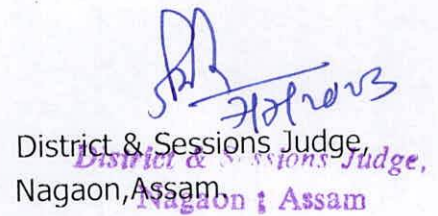 District & Sessions Judge,
Nagaon,Assam.
District & Sessions Judge,
Nagaon : Assam